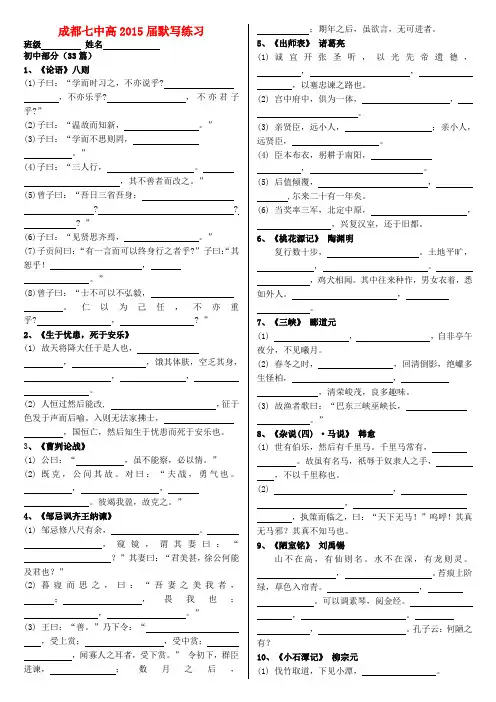 成都七中高2015届默写练习
班级 姓名
初中部分(33篇)
1、《论语》八则
(1)子曰:“学而时习之,不亦说乎?
,不亦乐乎? ,不亦君子
乎?”
(2)子曰:“温故而知新, 。”
(3)子曰:“学而不思则罔,
。”
(4)子曰:“三人行, 。
,其不善者而改之。”
(5)曾子曰:“吾日三省吾身:
? ?
?”
(6)子曰:“见贤思齐焉, 。”
(7)子贡问曰:“有一言而可以终身行之者乎?”子曰:“其
恕乎! ,
。”
(8)曾子曰:“士不可以不弘毅,
。仁以为己任,不亦重
乎? , ?”
2、《生于忧患,死于安乐》
(1) 故天将降大任于是人也,
, ,饿其体肤,空乏其身,
, ,
。
(2) 人恒过然后能改, ,征于
色发于声而后喻。入则无法家拂士,
,国恒亡,然后知生于忧患而死于安乐也。
3、《曹刿论战》
(1) 公曰:“ ,虽不能察,必以情。”
(2) 既克,公问其故。对曰:“夫战,勇气也。
, ,
。彼竭我盈,故克之。”
4、《邹忌讽齐王纳谏》
(1) 邹忌修八尺有余, 。
,窥镜,谓其妻曰:“
?”其妻曰:“君美甚,徐公何能
及君也?”
(2) 暮寝而思之,曰:“吾妻之美我者,
; ,畏我也;
, 。”
(3) 王曰:“善。”乃下令:“
,受上赏; ,受中赏;
,闻寡人之耳者,受下赏。” 令初下,群臣
进谏, ;数月之后,
;期年之后,虽欲言,无可进者。
5、《出师表》 诸葛亮
(1) 诚宜开张圣听,以光先帝遗德,
, ,
,以塞忠谏之路也。
(2) 宫中府中,俱为一体, ,
。
(3) 亲贤臣,远小人, ;亲小人,
远贤臣, 。
(4) 臣本布衣,躬耕于南阳,
, 。
(5) 后值倾覆, ,
,尔来二十有一年矣。
(6) 当奖率三军,北定中原, ,
,兴复汉室,还于旧都。
6、《桃花源记》 陶渊明
复行数十步, 。土地平旷,
, 。
,鸡犬相闻。其中往来种作,男女衣着,悉
如外人。 ,
。
7、《三峡》 郦道元
(1) , ,自非亭午
夜分,不见曦月。
(2) 春冬之时, ,回清倒影,绝巘多
生怪柏, ,
,清荣峻茂,良多趣味。
(3) 故渔者歌曰:“巴东三峡巫峡长,
。”
8、《杂说(四)·马说》 韩愈
(1) 世有伯乐,然后有千里马。千里马常有,
。故虽有名马,祇辱于奴隶人之手,
,不以千里称也。
(2) ,
,
,执策而临之,曰:“天下无马!”呜呼!其真
无马邪?其真不知马也。
9、《陋室铭》 刘禹锡
山不在高,有仙则名。水不在深,有龙则灵。
, 。苔痕上阶
绿,草色入帘青。 ,
。可以调素琴,阅金经。
, 。
, 。孔子云:何陋之
有?
10、《小石潭记》 柳宗元
(1) 伐竹取道,下见小潭, 。